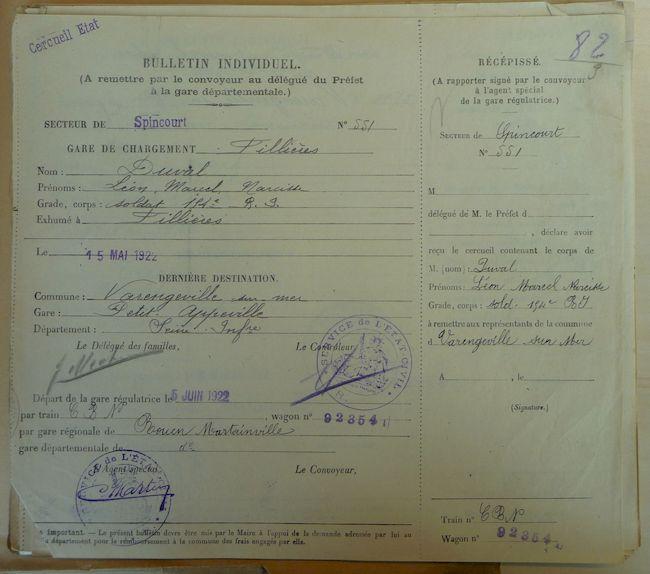 Cercueil Etat
BULLETIN INDIVIDUEL.
(A remettre par le convoyeur au délégué du Préfet
à la gare départementale.)
SECTEUR DE Spincourt N° 551
GARE DE CHARGEMENT Fillières
Nom : Duval
Prénoms : Léon Marcel Narcisse
Grade, corps : soldat 194e R. I.
Exhumé à Fillières
Le 15 MAI 1922
DERNIÈRE DESTINATION.
Commune : Varengeville sur mer
Gare : Petit Appeville
Département : Seine Infre
Le Délégué des familles, Le Contrôleur,
SERVICE de L'ÉTAT CIVIL
Départ de la gare régulatrice le 5 JUIN 1922
par train C B N, wagon n° 92354
par gare régionale de Rouen Martainville
gare départementale de do
L'Agent spécial, Le Convoyeur,
SERVICE de L'ÉTAT
Martin
important. — Le présent bulletin devra être mis par le Maire à l'appui de la demande adressée par lui au
département pour le remboursement à la commune des frais engagés par elle.
82
3
RÉCÉPISSÉ.
(A rapporter signé par le convoyeur
à l'agent spécial
de la gare régulatrice.)
SECTEUR de Spincourt
N° 551
M
délégué de M. le Préfet d
, déclare avoir
reçu le cercueil contenant le corps de
M. (nom) : Duval
Prénoms : Léon Marcel Narcisse
Grade, corps : sold. 194e RI
à remettre aux représentants de la commune
d Varengeville sur Mer
A , le
(Signature.)
Train n° C B N
Wagon n° 92354